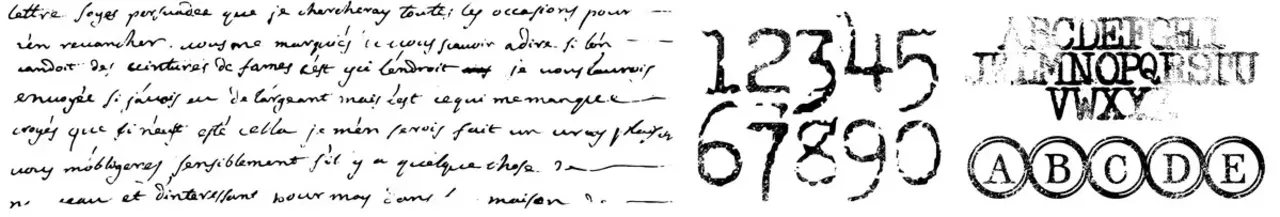 lettre soyes persuadée que je chercheray toutes les occasions pour
m'en revancher. vous me marqués
des ceintures de fames c'est qui l'endroit je vous l'aurois
envoyée si j'avois eu de l'argeant mais c'est ce qui me manque
croyés que si n'eust esté cella je m'en serois fait un vray plaisir
vous m'obligeres sensiblement s'il y a quelque chose de
et d'interessant pour moy dans maison de
12345
67890
ABCDEFGHI
JKLMNOPQRSTU
VWXYZ
A B C D E